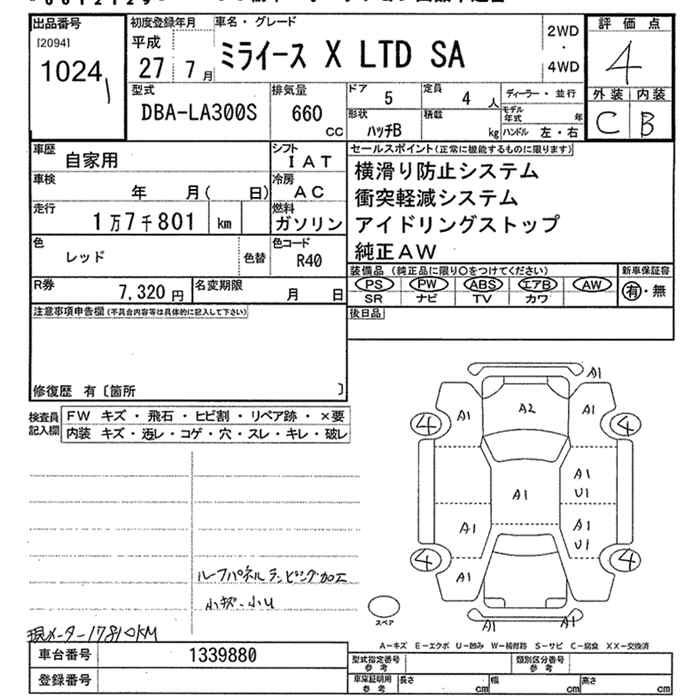 出品番号
[2094]
1024
1
初度登録年月
平成
27 7月
車名・グレード
ミライース X LTD SA
2WD
・
4WD
評価点
4
外装 内装
C B
型式
DBA-LA300S
排気量
660
CC
ドア
5
定員
4 人
ディーラー・並行
形状
ハッチB
積載
kg
モデル年式 年
ハンドル 左・右
車歴
自家用
シフト
IAT
車検
年 月( 日)
冷房
AC
走行
1万7千801 km
燃料
ガソリン
色
レッド
色替
色コード
R40
R券
7,320円
名変期限
月 日
セールスポイント(正常に機能するものに限ります)
横滑り防止システム
衝突軽減システム
アイドリングストップ
純正AW
装備品(純正品に限り○をつけてください)
PS PW ABS エアB AW
SR ナビ TV カワ
新車保証書
有・無
後日品
注意事項申告欄(不具合内容等は具体的に記入して下さい)
修復歴 有〔箇所 〕
検査員
記入欄
FW キズ・飛石・ヒビ割・リペア跡・×要
内装 キズ・汚レ・コゲ・穴・スレ・キレ・破レ
A1
4 A1 A2 A1 4
A1
U1
A1
A1 A1
U1
4 A1 4
A1 A1
スペア
小キズ・小U
現メーター17810KM
A-キズ E-エクボ U-凹み W-補修跡 S-サビ C-腐食 XX-交換済
車台番号
1339880
登録番号
型式指定番号
参考
類別区分番号
参考
車庫証明用
参考
長さ cm
幅 cm
高さ cm